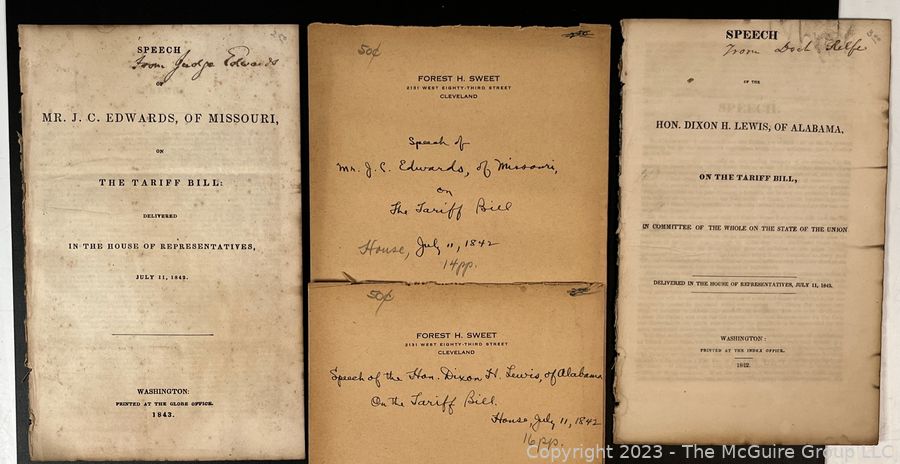 SPEECH
From Judge Edwards
OF
MR. J. C. EDWARDS, OF MISSOURI,
ON
THE TARIFF BILL:
DELIVERED
IN THE HOUSE OF REPRESENTATIVES,
JULY 11, 1842.
WASHINGTON:
PRINTED AT THE GLOBE OFFICE.
1843.
50¢
FOREST H. SWEET
2131 WEST EIGHTY-THIRD STREET
CLEVELAND
Speech of
Mr. J. C. Edwards, of Missouri,
on
The Tariff Bill
House, July 11, 1842
14pp.
50¢
FOREST H. SWEET
2131 WEST EIGHTY-THIRD STREET
CLEVELAND
Speech of the Hon. Dixon H. Lewis, of Alabama
On the Tariff Bill.
House, July 11, 1842
16pp.
SPEECH
From Doct Relfe
OF THE
HON. DIXON H. LEWIS, OF ALABAMA,
ON THE TARIFF BILL,
IN COMMITTEE OF THE WHOLE ON THE STATE OF THE UNION
DELIVERED IN THE HOUSE OF REPRESENTATIVES, JULY 11, 1842.
WASHINGTON:
PRINTED AT THE INDEX OFFICE.
1842.
Copyright 2023 - The McGuire Group LLC